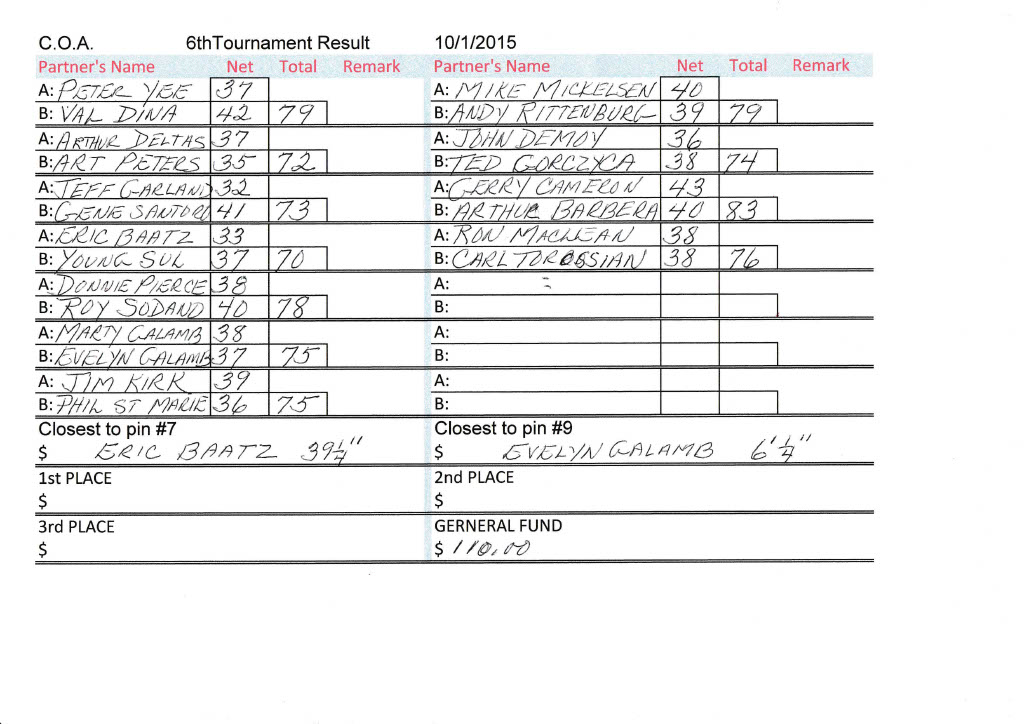 C.O.A. 6thTournament Result 10/1/2015
Partner's Name Net Total Remark Partner's Name Net Total Remark
A: PETER YEE 37 A: MIKE MICKELSEN 40
B: VAL DINA 42 79 B: ANDY RITTENBURG 39 79
A: ARTHUR DELTAS 37 A: JOHN DEMOY 36
B: ART PETERS 35 72 B: TED GORCZYCA 38 74
A: JEFF GARLAND 32 A: GERRY CAMERON 43
B: GENE SANTORO 41 73 B: ARTHUR BARBERA 40 83
A: ERIC BAATZ 33 A: RON MACLEAN 38
B: YOUNG SUL 37 70 B: CARL TOROSSIAN 38 76
A: DONNIE PIERCE 38 A:
B: ROY SODANO 40 78 B:
A: MARTY GALAMB 38 A:
B: EVELYN GALAMB 37 75 B:
A: JIM KIRK 39 A:
B: PHIL ST MARIE 36 75 B:
Closest to pin #7 Closest to pin #9
$ ERIC BAATZ 39 1/4" $ EVELYN GALAMB 6' 1/4"
1st PLACE 2nd PLACE
$ $
3rd PLACE GERNERAL FUND
$ $ 110.00